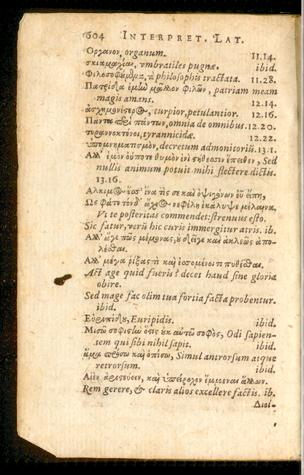 604 INTERPRET. LAT.
Οργανον, organum. 11.14.
σκιαμαχίαι, vmbratiles pugnæ. ibid.
Φιλοσοφούμθμα, à philosophis tractata. 11.28.
Πατρίδα ἐμαυ μᾶλλον φιλῶν, patriam meam
magis amans. 12.14.
turpior, petulantior. 12.16.
Παντα περὶ πάντων, omnia de omnibus. 12.20.
τυραννοκτόνοι, tyrannicidæ. 12.22.
ὑπομνηματισμὸν, decretum admonitorij. 13.1.
Αλλ' ἐμὸν οὔποτε θυμὸν ἐνὶ στήθεσσιν ἔπειθεν, Sed
nullis animum potuit mihi flectere dictis.
13.16.
Ως φάτο τὸν δ' ἄχεος νεφέλη ἐκάλυψε μέλαινα.
Vt te posteritas commendet: strenuus esto.
Sic fatur, verùm hic curis immergitur atris. ib.
Αλλ' μέγα ῥέξας τι καὶ ἐσσομένοισι πυθέσθαι.
Act age quid fueris? decet haud sine gloria
obire.
Sed mage fac olim tua fortia facta probentur.
ibid.
Εὐριπίδου, Euripidis. ibid.
Μισῶ σοφιστὴν ὅστις οὐκ αὑτῷ σοφὸς, Odi sapien-
tem qui sibi nihil sapit. ibid.
ἅμα πρόσω καὶ ὀπίσω, Simul antrorsum atque
retrorsum. ibid.
Αἰὲν ἀριστεύειν, καὶ ὑπείροχον ἔμμεναι ἄλλων.
Rem gerere, & claris alios excellere factis. ib.